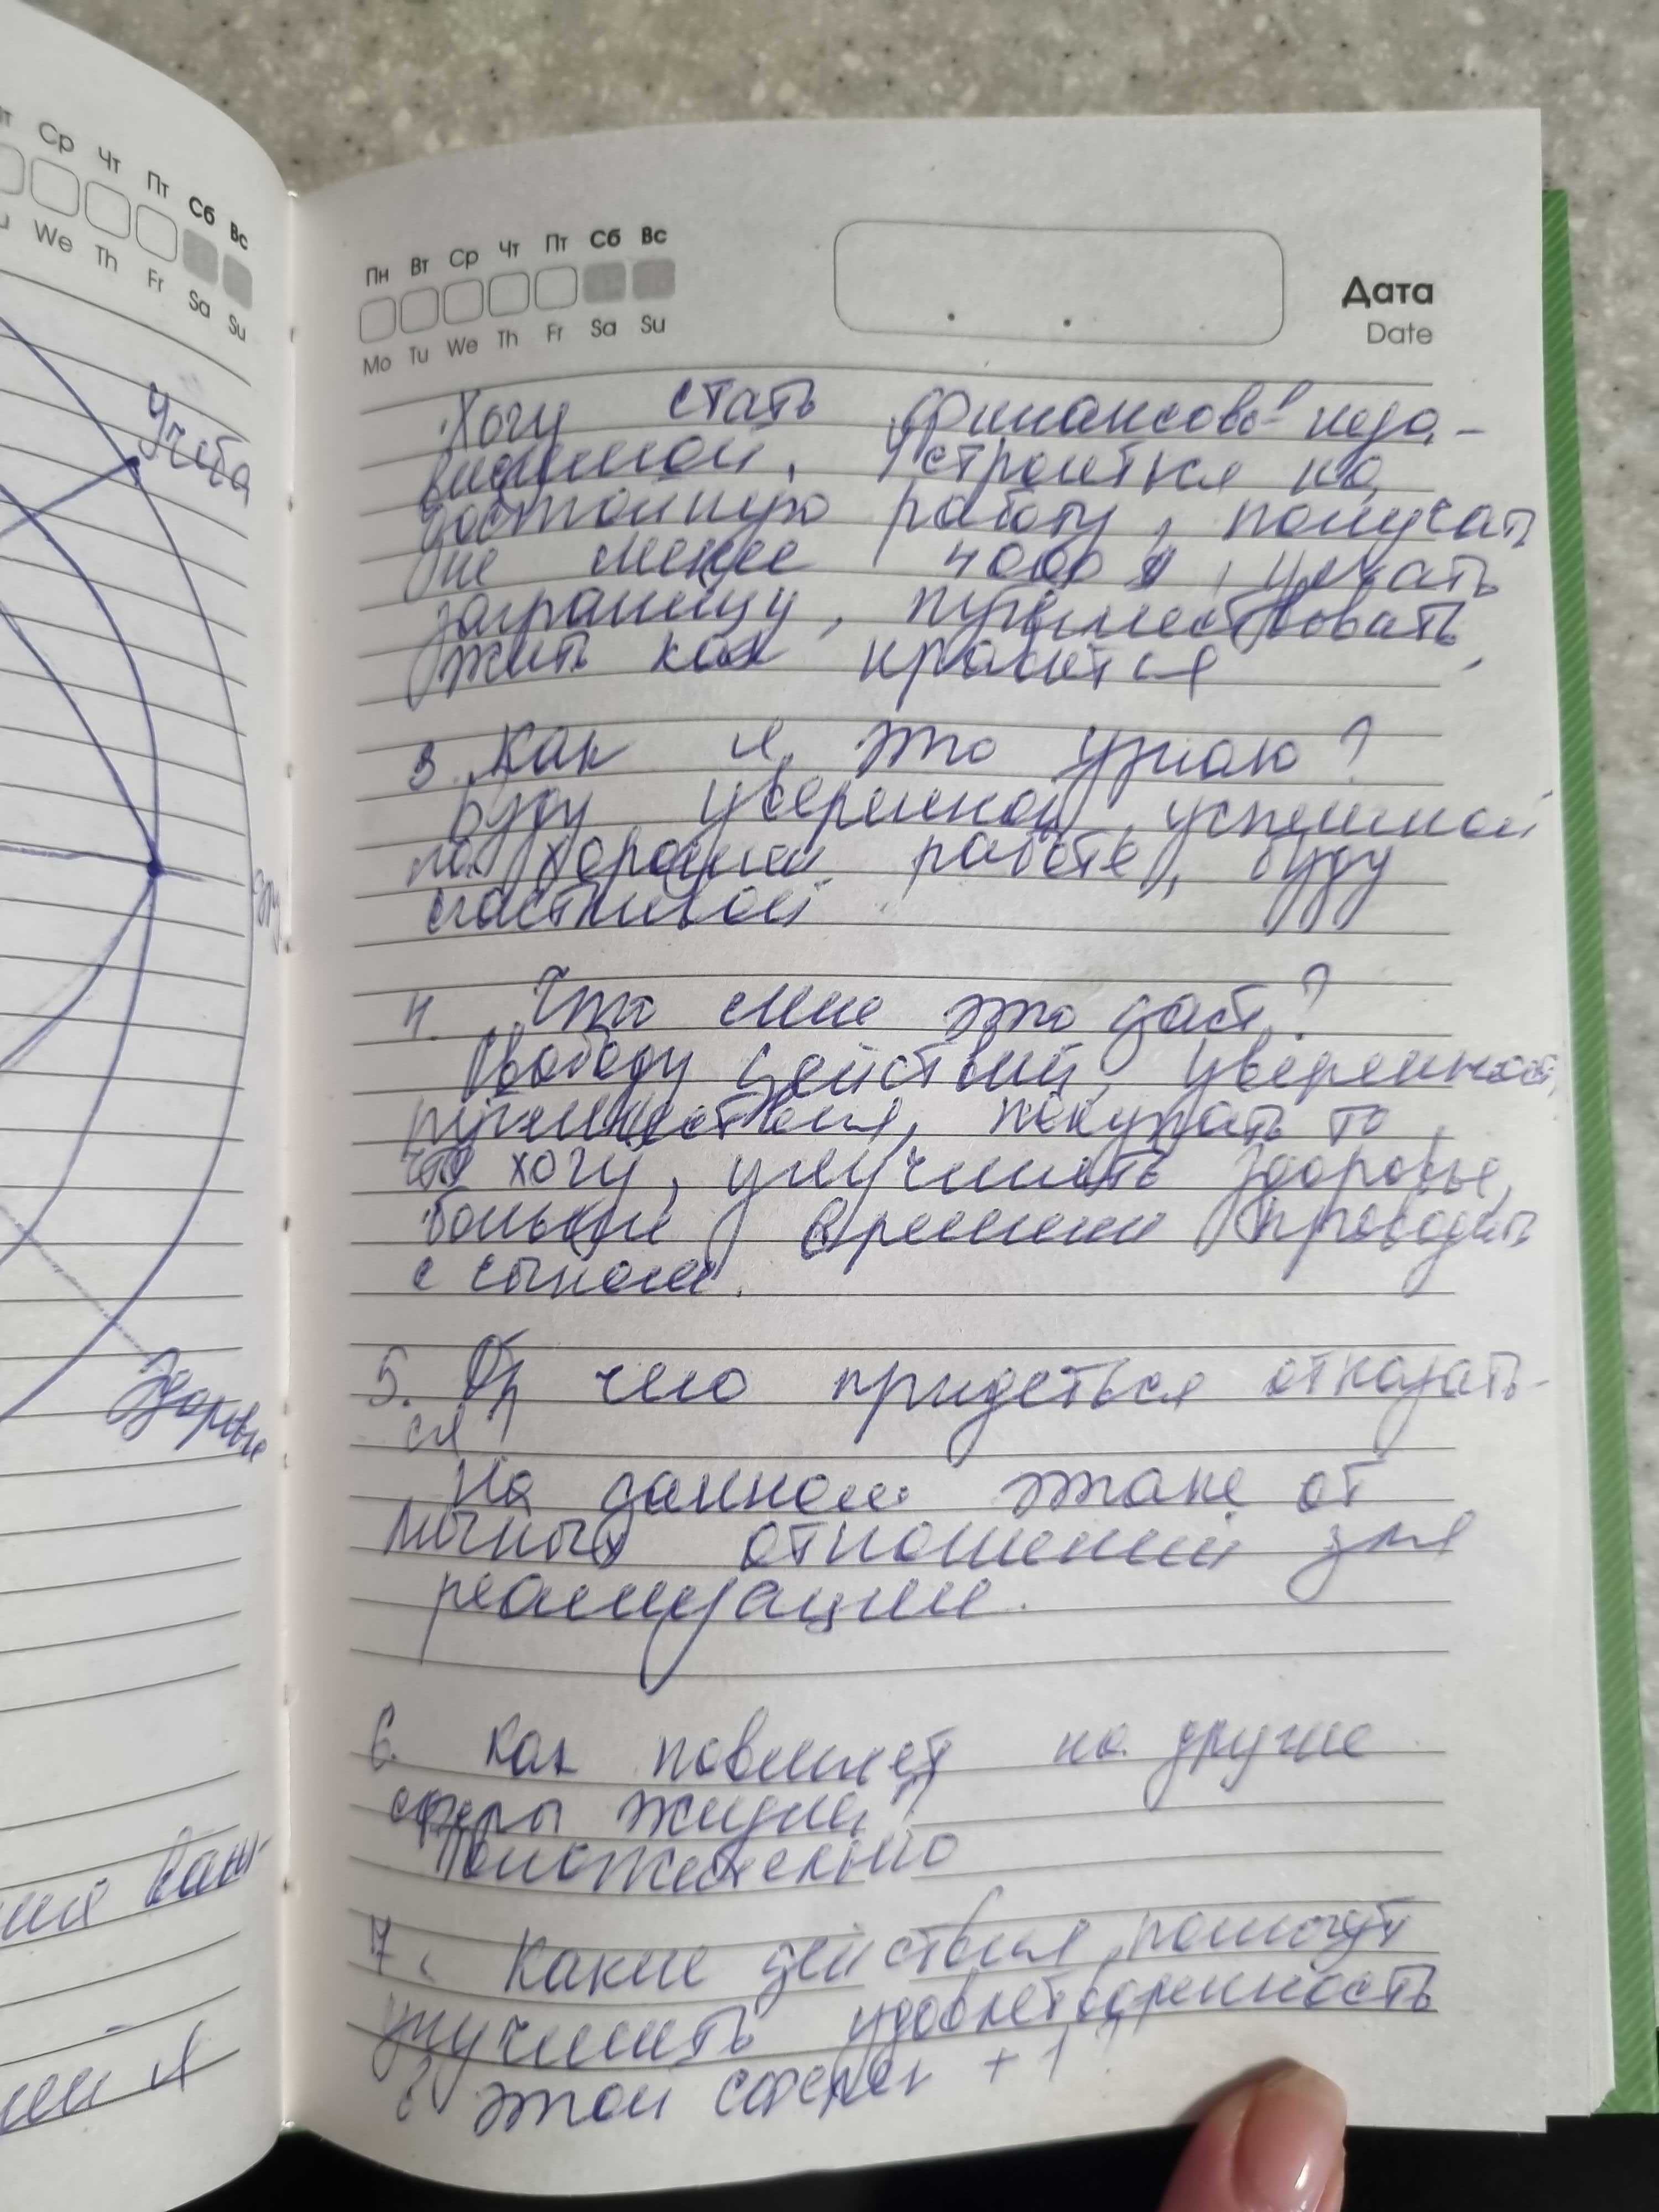 Ср Чт Пт Сб Вс
We Th Fr Sa Su
Учеба
Здоровье
Пн Вт Ср Чт Пт Сб Вс
Mo Tu We Th Fr Sa Su
Дата
Date
Хочу стать финансово неза-
висимой, устроиться на
достойную работу, получать
не менее 4000 $, уехать
заграницу, путешествовать,
жить как нравится
3. Как я это узнаю?
Буду уверенной, успешной
на хорошей работе, буду
счастливой
4. Что мне это даст?
Свободу действий, уверенность,
путешествия, покупать то
что хочу, улучшить здоровье,
больше времени проводить
с сыном.
5. От чего придеться отказать-
ся?
На данном этапе от
личных отношений для
реализации.
6. Как повлияет на другие
сферы жизни?
Положительно
7. Какие действия помогут
улучшить удовлетворенность
в этой сфере на +1?